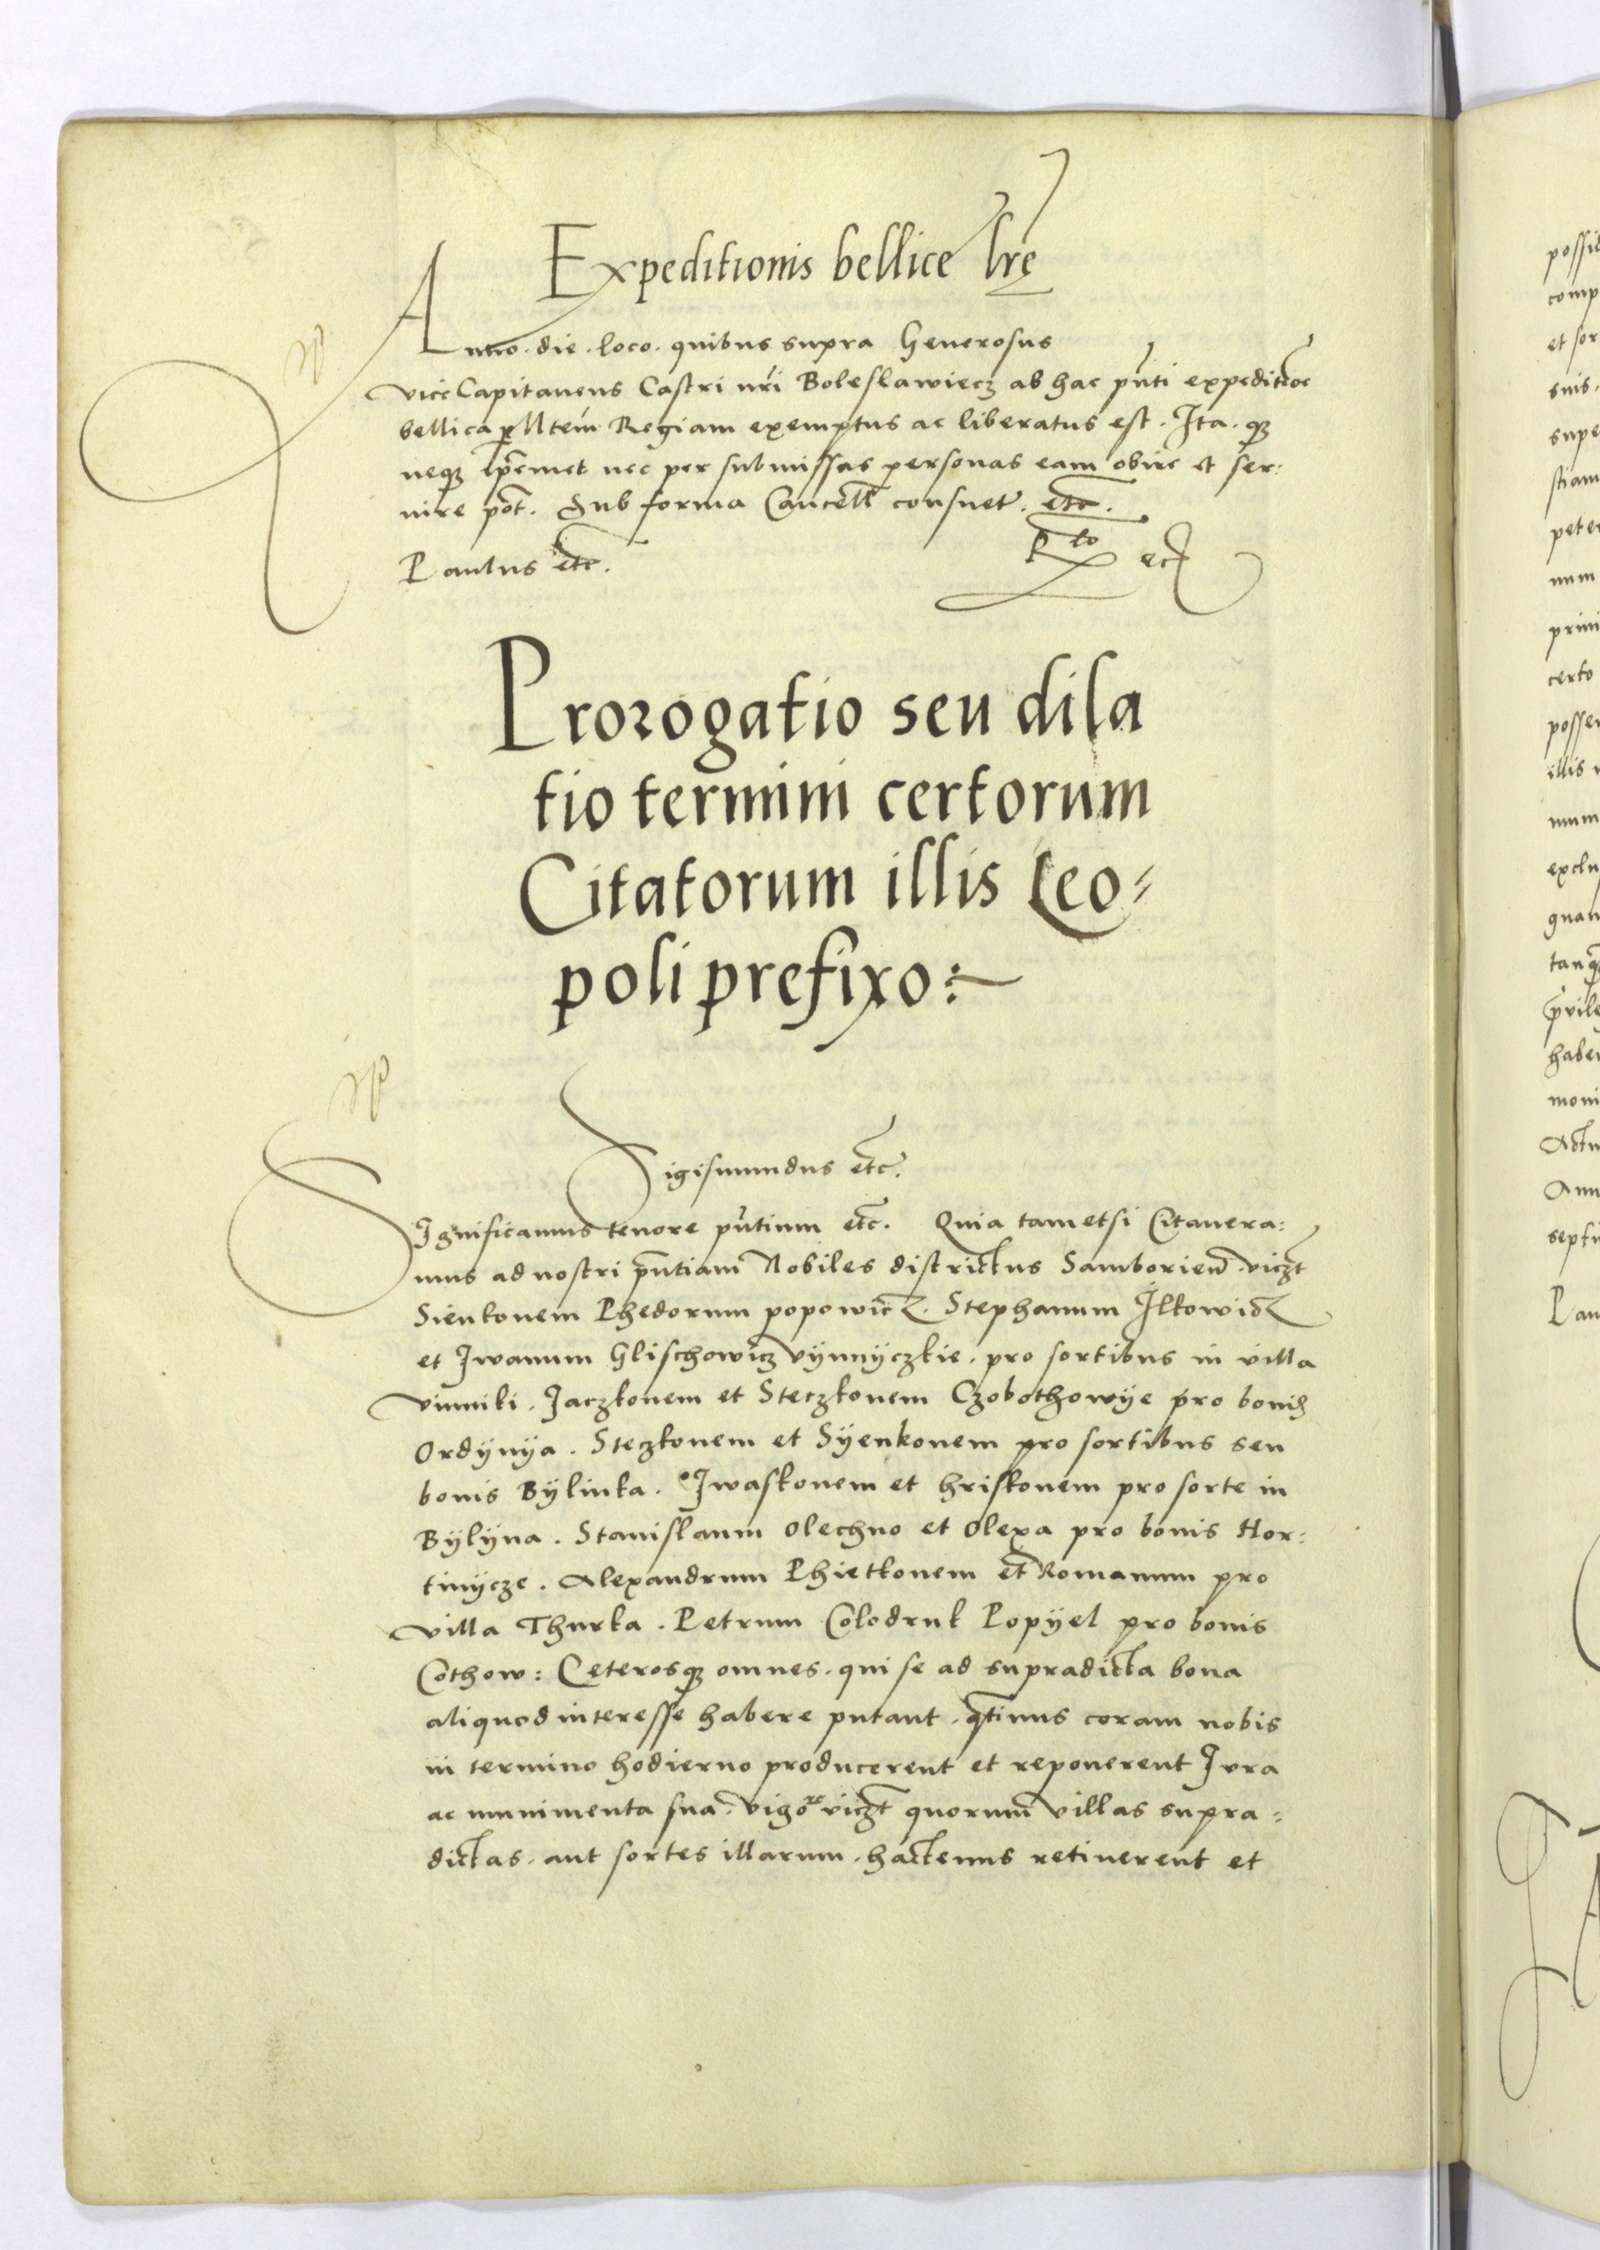 Expeditionis bellice lrę
Anno. die. loco. quibus supra Generosus
vice Capitaneus Castri nri Boleslawiecz ab hac pnti expeditioe
bellica p Mtem Regiam exemptus ac liberatus est. Ita. q3
neq3 ipsemet nec per submissas personas eam obire et ser:
uire pot. Sub forma Cancell consuet. etc.
Paulus etc.
Prorogatio seu dila
tio termini certorum
Citatorum illis Leo=
poli prefixo:~
Sigismundus etc.
SIgnificamus tenore pntium etc. Quia tametsi Citauera:
mus ad nostri pntiam Nobiles districtus Samborien viczt
Sienkonem Phedorum popowicz. Stephanum Ilkowicz
et Iwanum Glischowicz vÿnnÿczkie. pro sortibus in villa
vinniki. Jaczkonem et Steczkonem Czobothowÿe pro bonis
Ordÿnÿa. Steczkonem et Sÿenkonem pro sortibus seu
bonis Bÿlinka. Iwaskonem et hriskonem pro sorte in
Bÿlÿna. Stanislaum olechno et olexa pro bonis Hor:
tinÿcze. Alexandrum Phietkonem et Romanum pro
villa Thurka. Petrum Colodruk Popÿel pro bonis
Cothow: Ceterosq3 omnes. qui se ad supradicta bona
aliquod interesse habere putant. qtinus coram nobis
in termino hodierno producerent et reponerent Iura
ac munimenta sua. vigore viczt quorum villas supra=
dictas. aut sortes illarum. hactenus retinerent et
possi
comp
et sor
suis.
supe
stiam
peter
num
primi
certo
posse
illis
mum
exclu
quam
tanq3
prile
habe
moni
Actu
Ann
septi
Pau